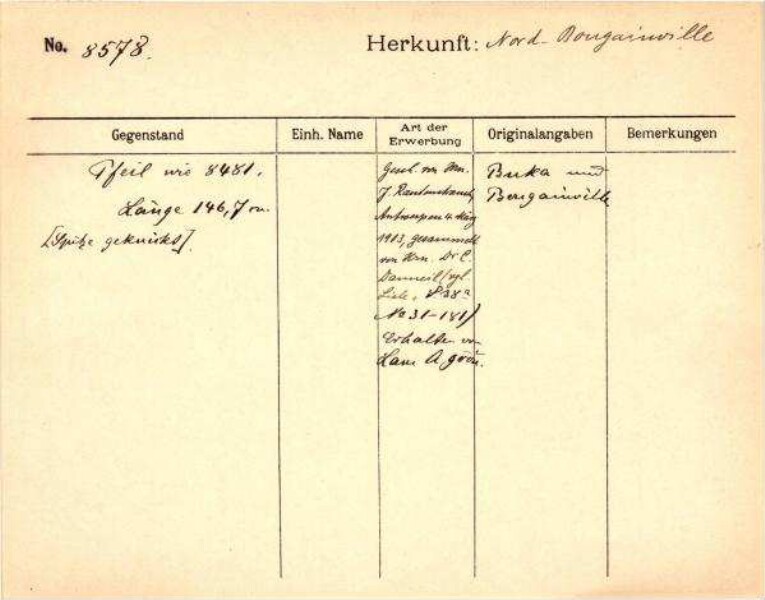 No. 8578.
Herkunft: Nord-Bougainville
Gegenstand
Einh. Name
Art der Erwerbung
Originalangaben
Bemerkungen
Pfeil wie 8481.
Länge 146,7 cm.
[Spitze geknickt].
Gesch. von Hrn.
J.
Antwerpen 4. März
1913, gesammelt
von Hrn. Dr C.
Danneil (vgl.
Liste, 838a
No 31-181)
Erhalten von
Buka und
Bougainville